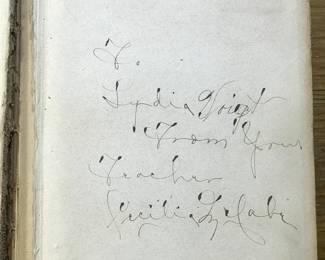 To
Lydia Voigt
From Your
Teacher
Cecilia